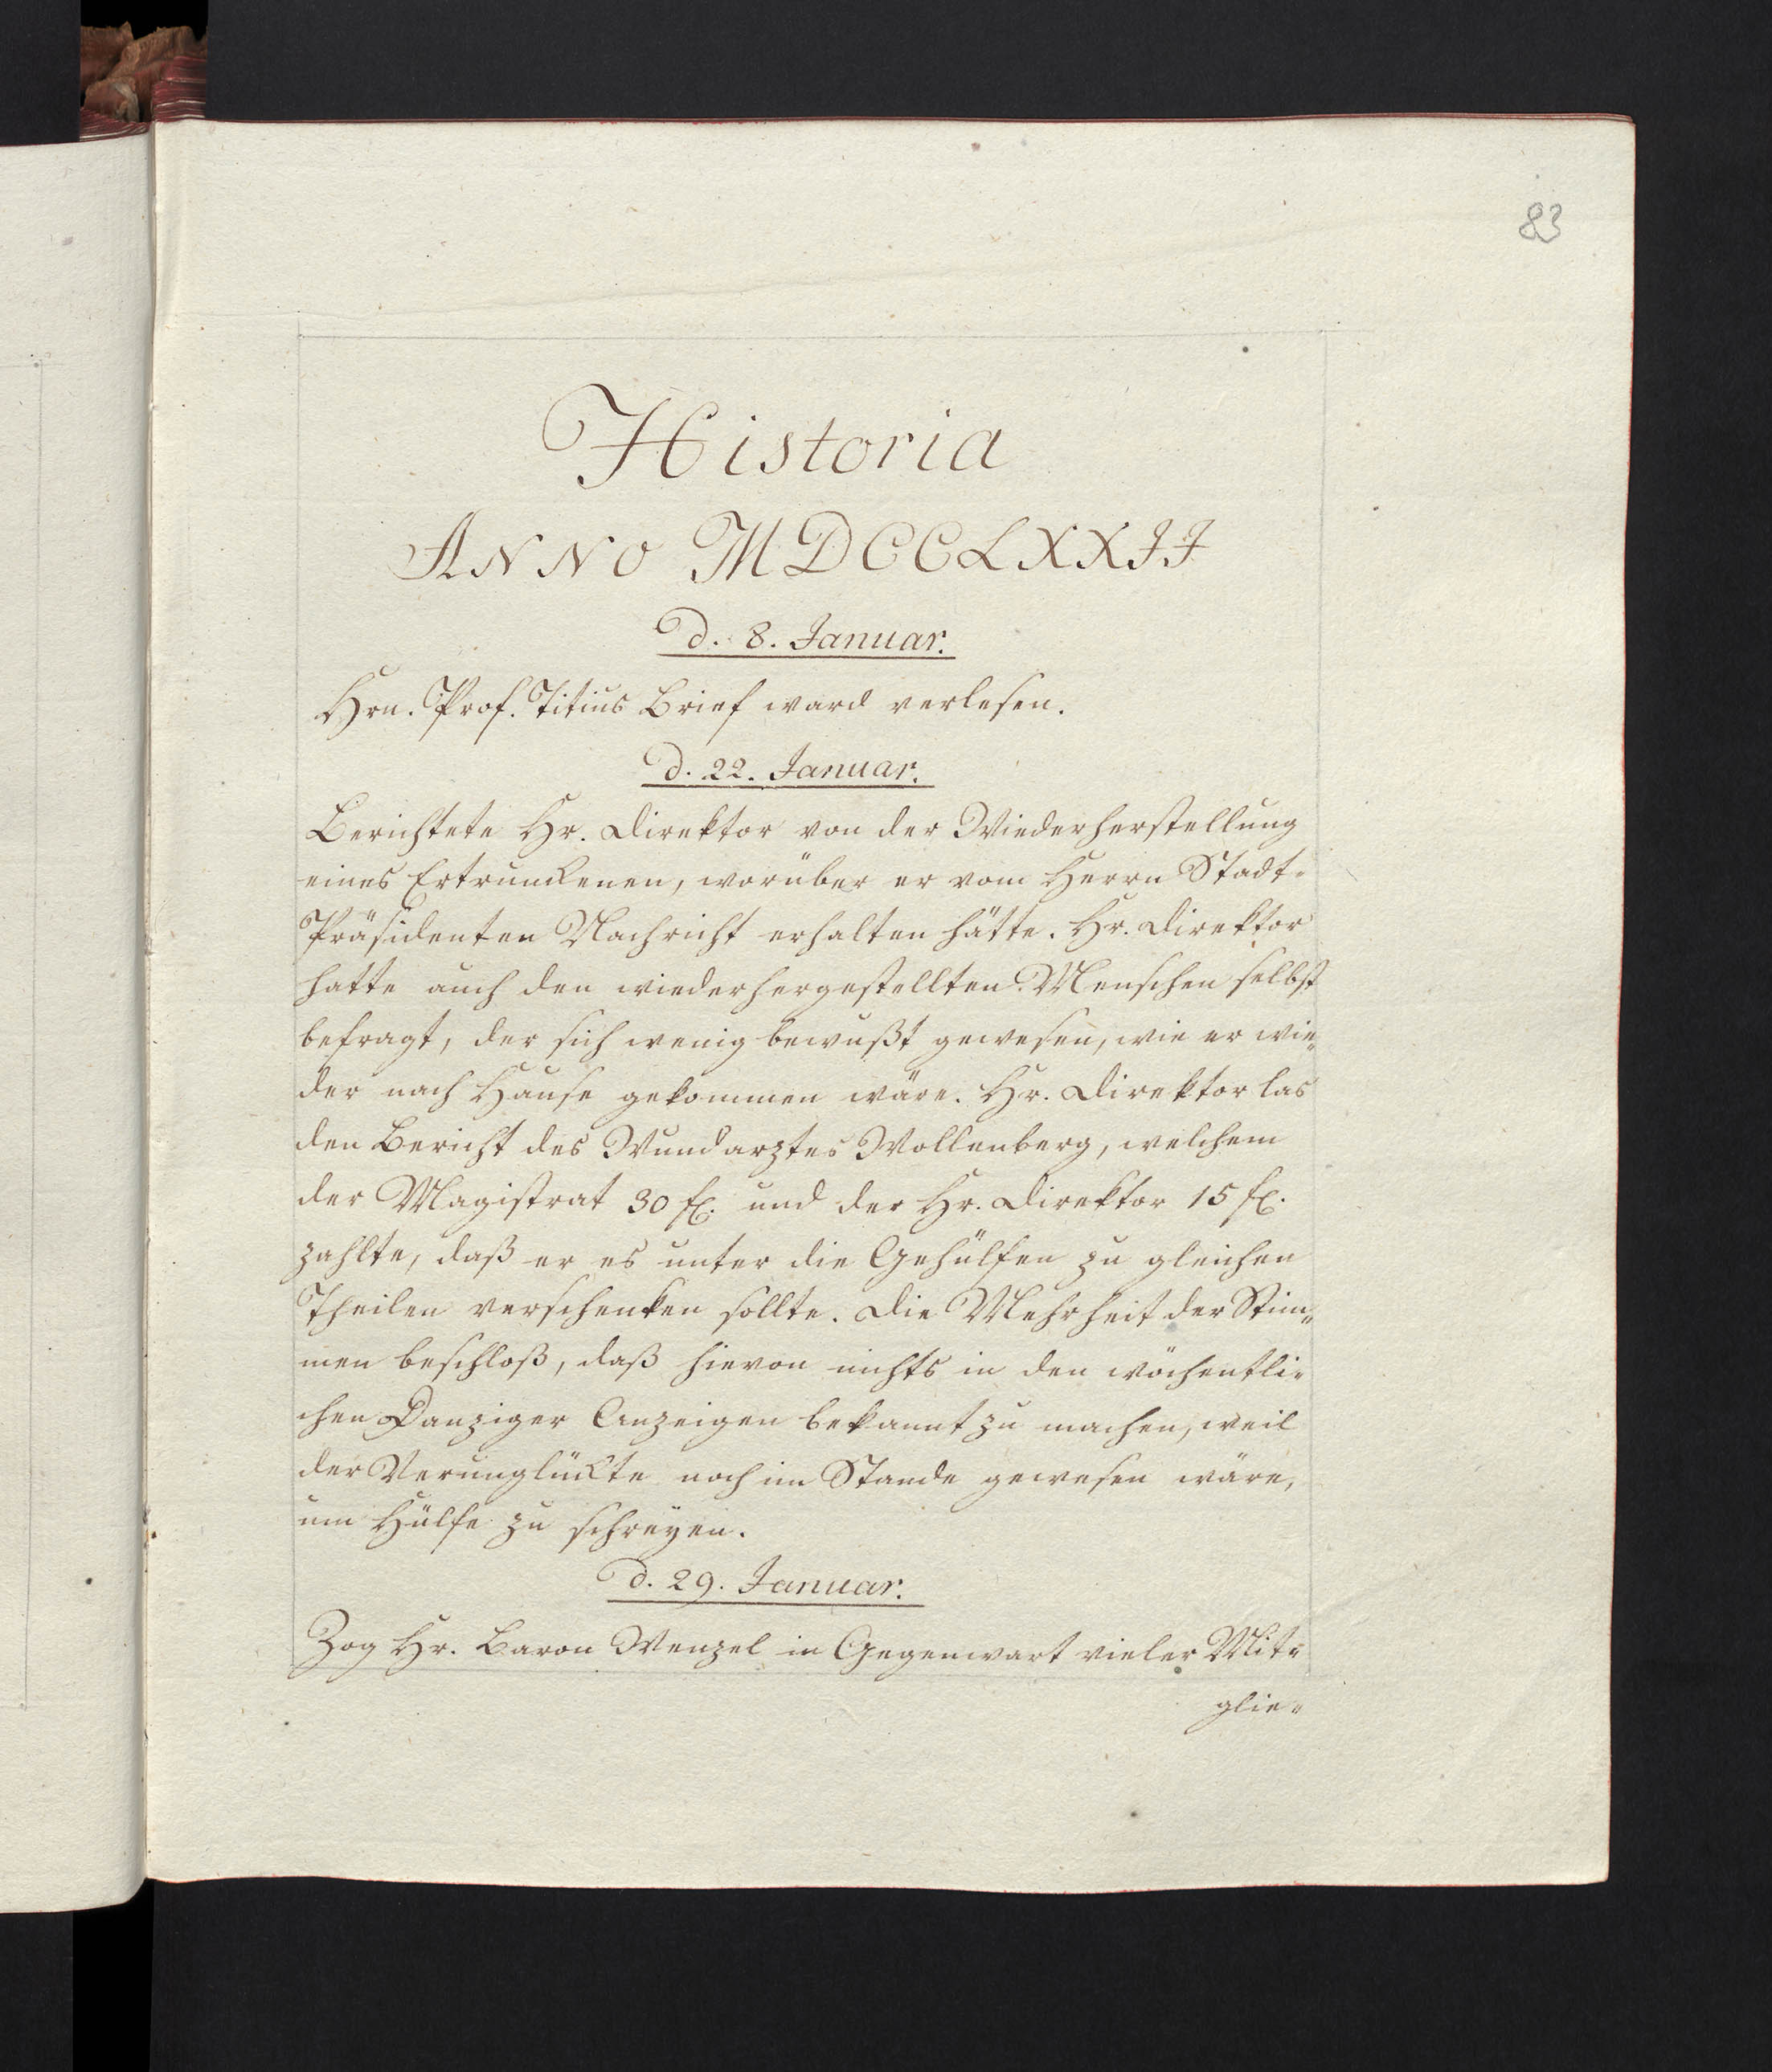 83
Historia
ANNO MDCCLXXII
d. 8. Januar.
Hrn. Prof. Titius Brief ward verlesen.
d. 22. Januar.
Berichtete Hr. Direktor von der Wiederherstellung
eines Ertrunckenen, worüber er vom Herrn Stadt-
Präsidenten Nachricht erhalten hätte. Hr. Direktor
hatte auch den wiederhergestellten Menschen selbst
befragt, der sich wenig bewußt gewesen, wie er wie-
der nach Hause gekommen wäre. Hr. Direktor las
den Bericht des Wundarztes Wollenberg, welchem
der Magistrat 30 fl. und der Hr. Direktor 15 fl.
zahlte, daß er es unter die Gehülfen zu gleichen
Theilen verschenken sollte. Die Mehrheit der Stim-
men beschloß, daß hievon nichts in den wöchentli-
chen Danziger Anzeigen bekannt zu machen, weil
der Verunglückte noch im Stande gewesen wäre,
um Hülfe zu schreyen.
d. 29. Januar.
Zog Hr. Baron Wenzel in Gegenwart vieler Mit-
glie-